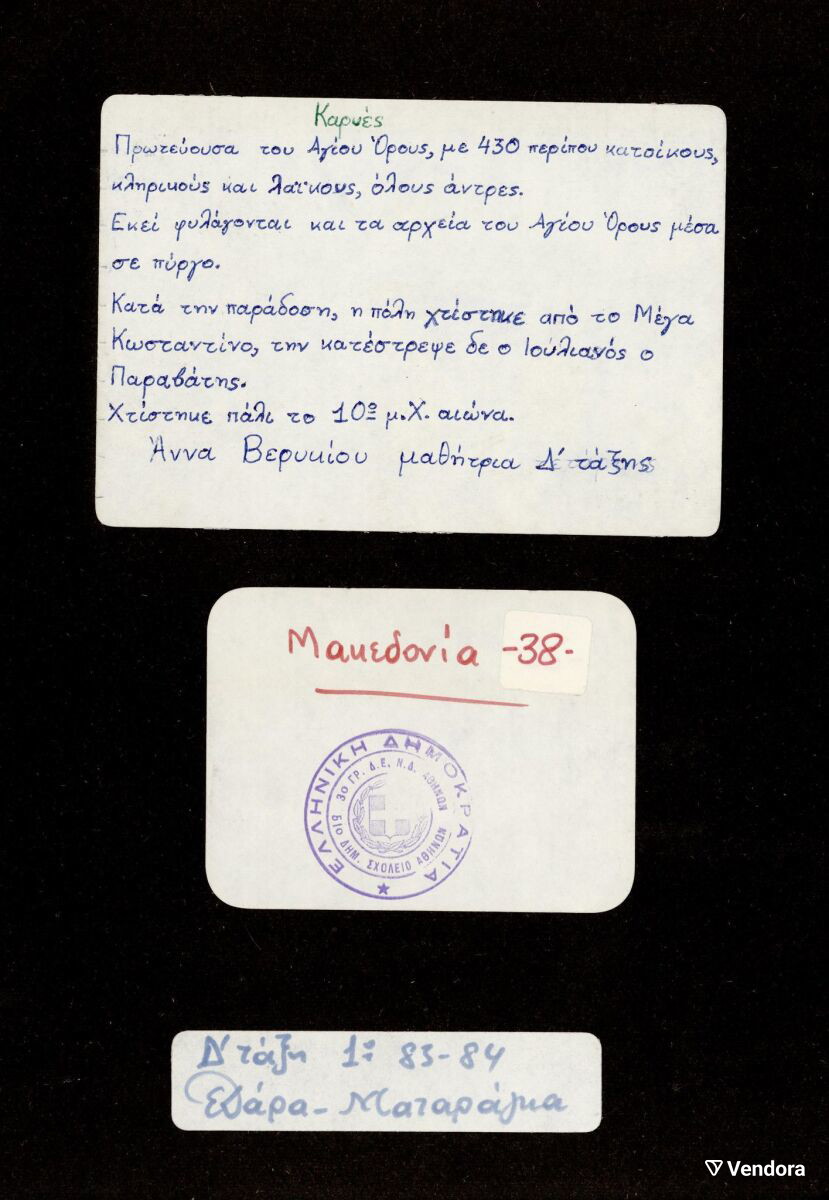 Καρυές
Πρωτεύουσα του Αγίου Όρους, με 430 περίπου κατοίκους,
κληρικούς και λαϊκους, όλους άντρες.
Εκεί φυλάγονται και τα αρχεία του Αγίου Όρους μέσα
σε πύργο.
Κατά την παράδοση, η πόλη χτίστηκε από το Μέγα
Κωσταντίνο, την κατέστρεψε δε ο Ιουλιανός ο
Παραβάτης.
Χτίστηκε πάλι το 10º μ.Χ. αιώνα.
Άννα Βερυκίου μαθήτρια Δ' τάξης
Μακεδονία -38-
ΕΛΛΗΝΙΚΗ ΔΗΜΟΚΡΑΤΙΑ
3ο ΓΡ. Δ.Ε. Ν.Δ. ΑΘΗΝΩΝ
51ο ΔΗΜ. ΣΧΟΛΕΙΟ ΑΘΗΝΩΝ
Δ' τάξη 1º 83-84
Δάρα - Ματαράγκα
Vendora